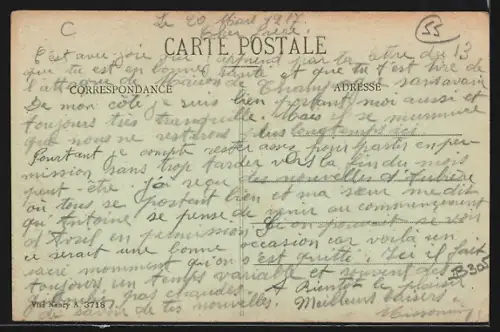 C
Le 20 Mars 1917
55
Cher Frère,
CARTE POSTALE
C'est avec joie que j'apprend par ta lettre du 13
que tu es en bonne santé et que tu t'est tiré de
l'attaque de sans avoir
CORRESPONDANCE
ADRESSE
De mon côté je suis bien portant moi aussi et
toujours très tranquille. Mais il se murmure
que nous ne resterons plus longtemps ici
Pourtant je compte rester assez pour partir en per-
mission sans trop tarder vers la fin du mois
peut-être. J'ai reçu des nouvelles d'
où tous se portent bien et ma sœur me dit
qu'Antoine se pense de venir au commencement
d'Avril en permission. Si on pouvait se voir
ce serait une bonne occasion car voilà un
sacré moment qu'on s'est quitté. Ici il fait
toujours un temps variable et souvent des
pas chaudes. A Bientôt le plaisir
de savoir de tes nouvelles. Meilleurs baisers.
B305
Visé Nancy A. 3718